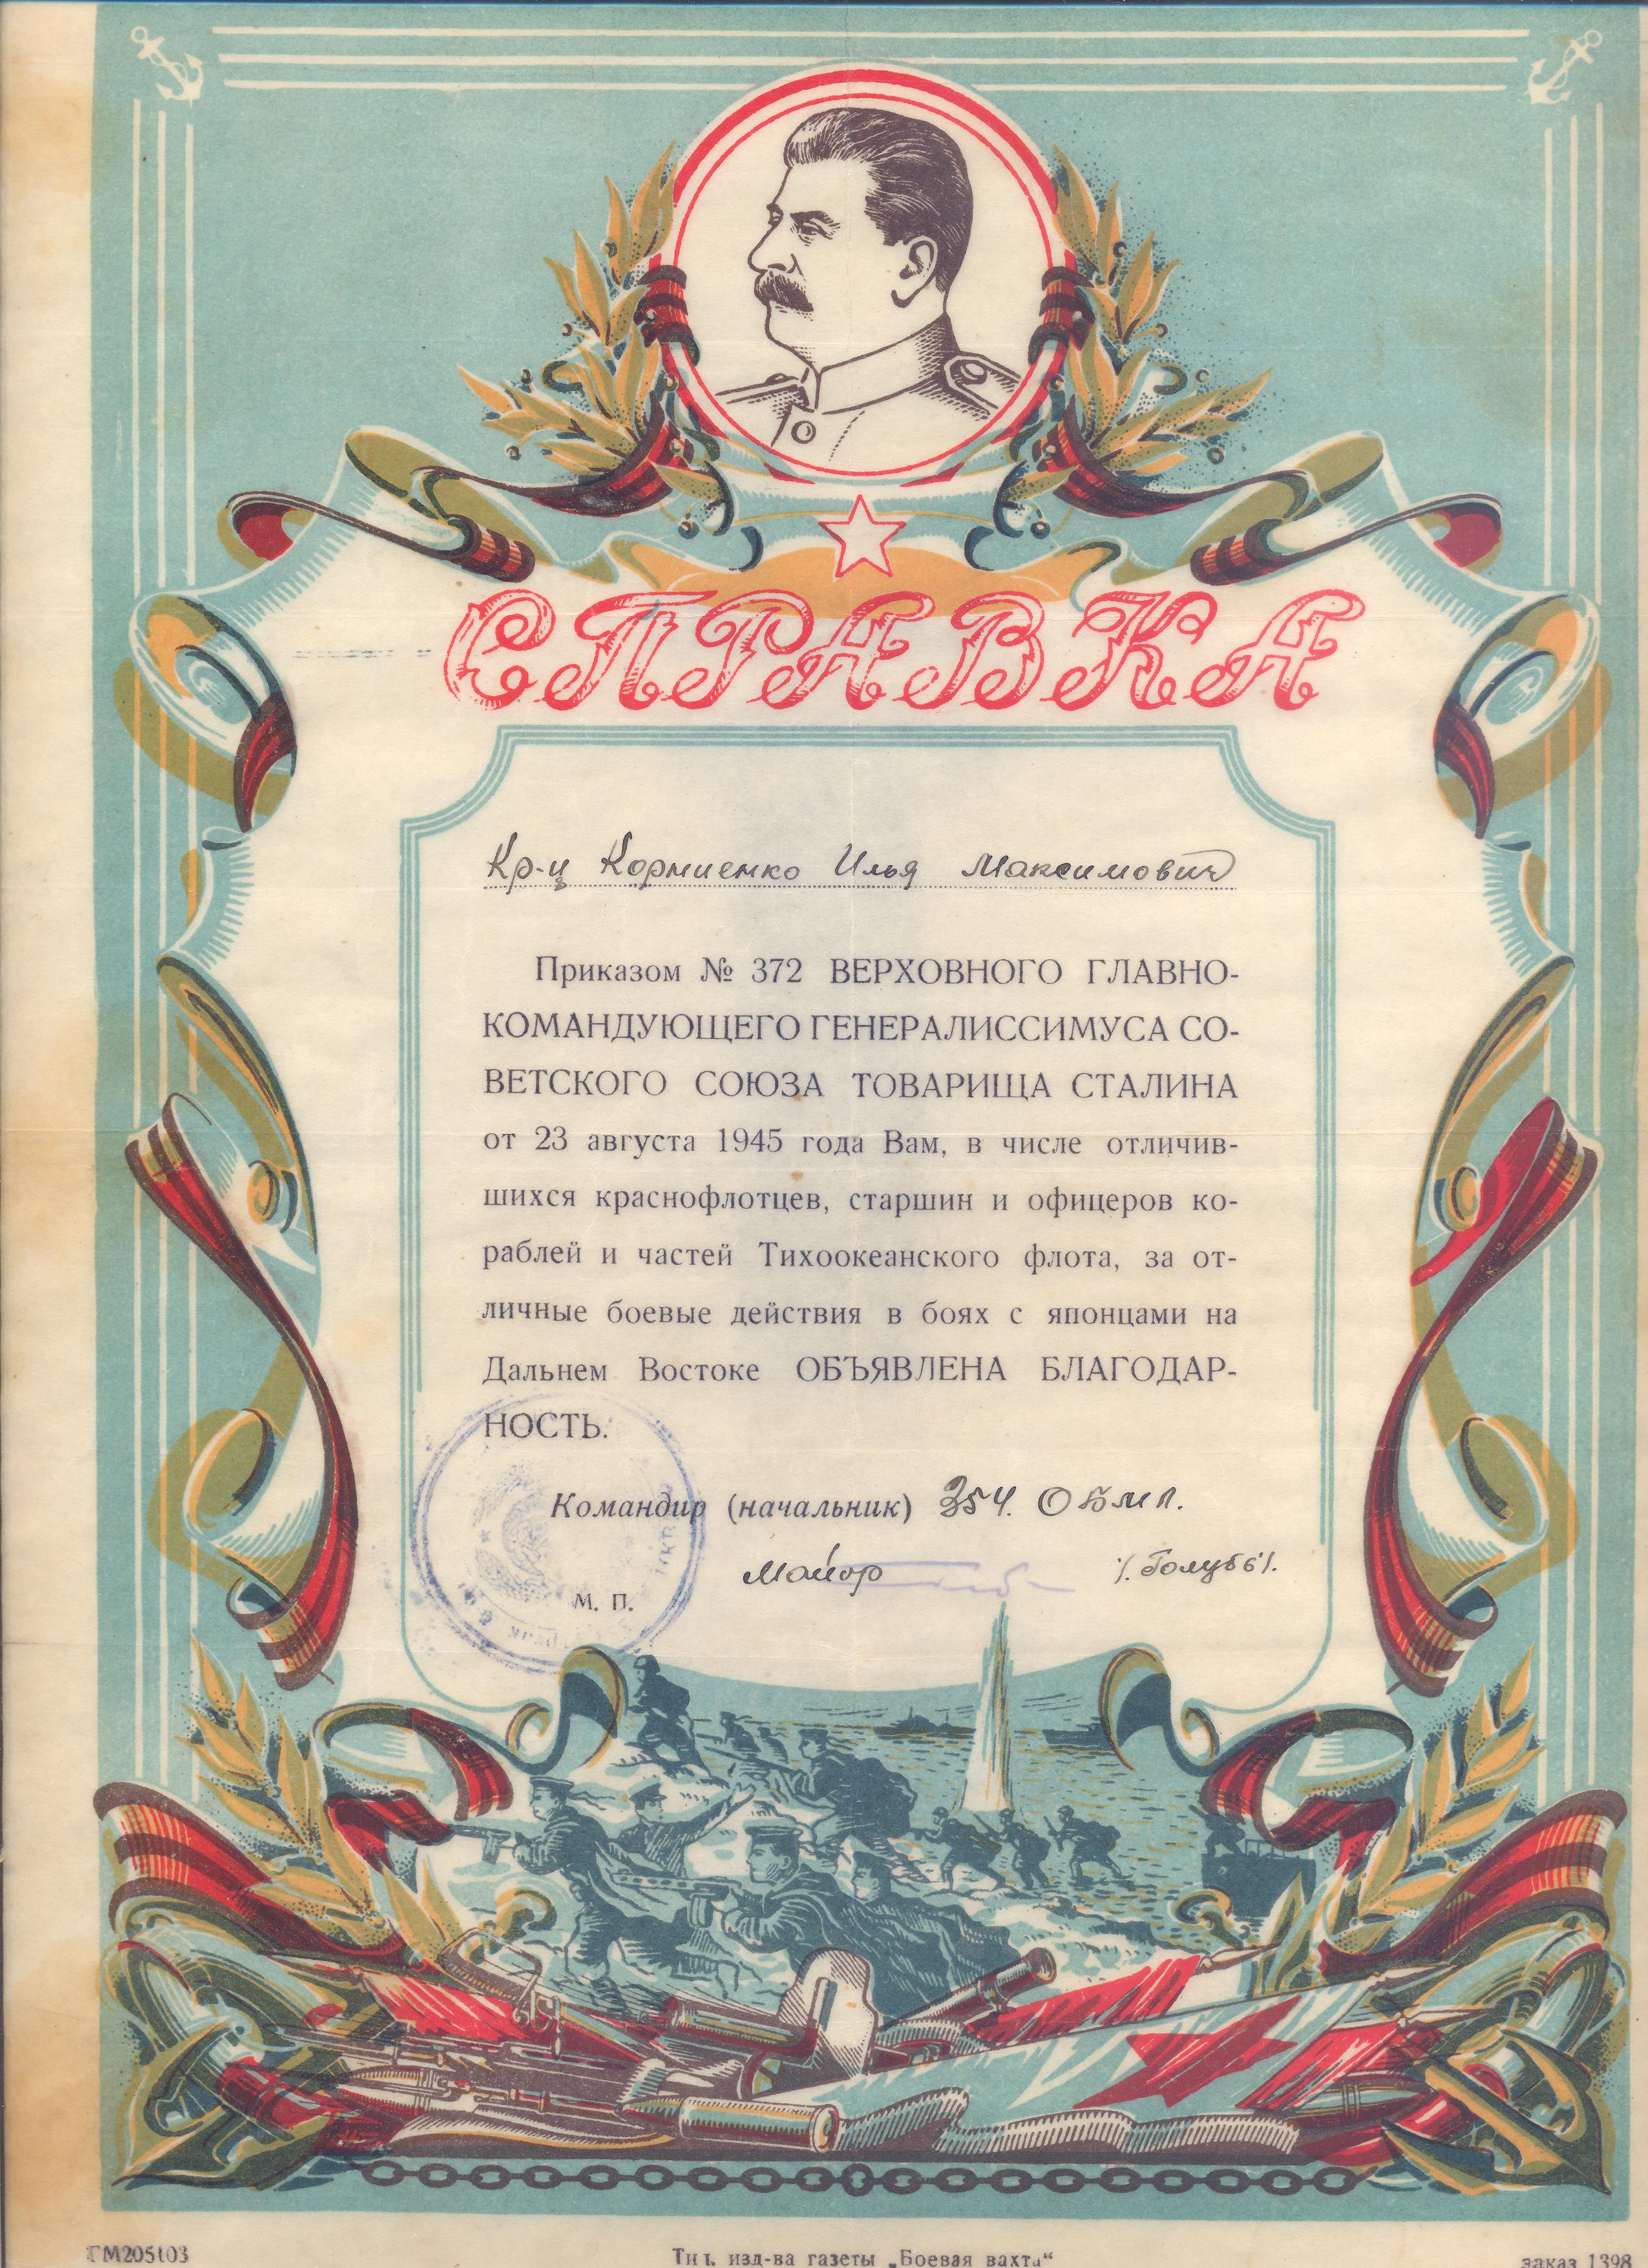 СПРАВКА
Кр-ц Корниенко Илья Максимович
Приказом № 372 ВЕРХОВНОГО ГЛАВНО-
КОМАНДУЮЩЕГО ГЕНЕРАЛИССИМУСА СО-
ВЕТСКОГО СОЮЗА ТОВАРИЩА СТАЛИНА
от 23 августа 1945 года Вам, в числе отличив-
шихся краснофлотцев, старшин и офицеров ко-
раблей и частей Тихоокеанского флота, за от-
личные боевые действия в боях с японцами на
Дальнем Востоке ОБЪЯВЛЕНА БЛАГОДАР-
НОСТЬ.
Командир (начальник) 354. ОБМП.
Майор /. Голубь /.
М. П.
ГМ205103
Тип. изд-ва газеты „Боевая вахта“
заказ 1398